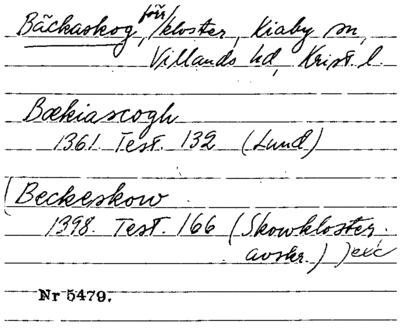 Bäckaskog, förr /kloster, Kiaby sn,
Villands hd, Krist. l.
Bækiascogh
1361. Test. 132 (Lund)
(Beckeskow
1398. Test. 166 (Skowkloster.
avskr.) )exc
Nr 5479.